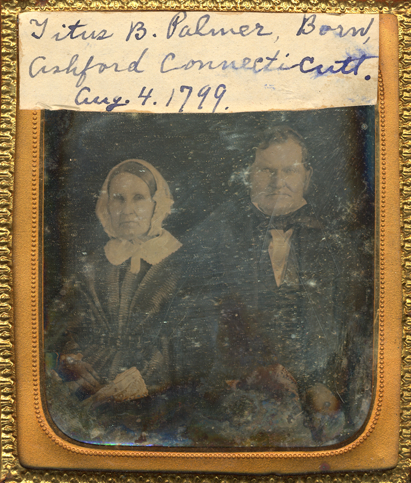 Titus B. Palmer, Born,
Ashford Connecticutt.
Aug. 4. 1799.